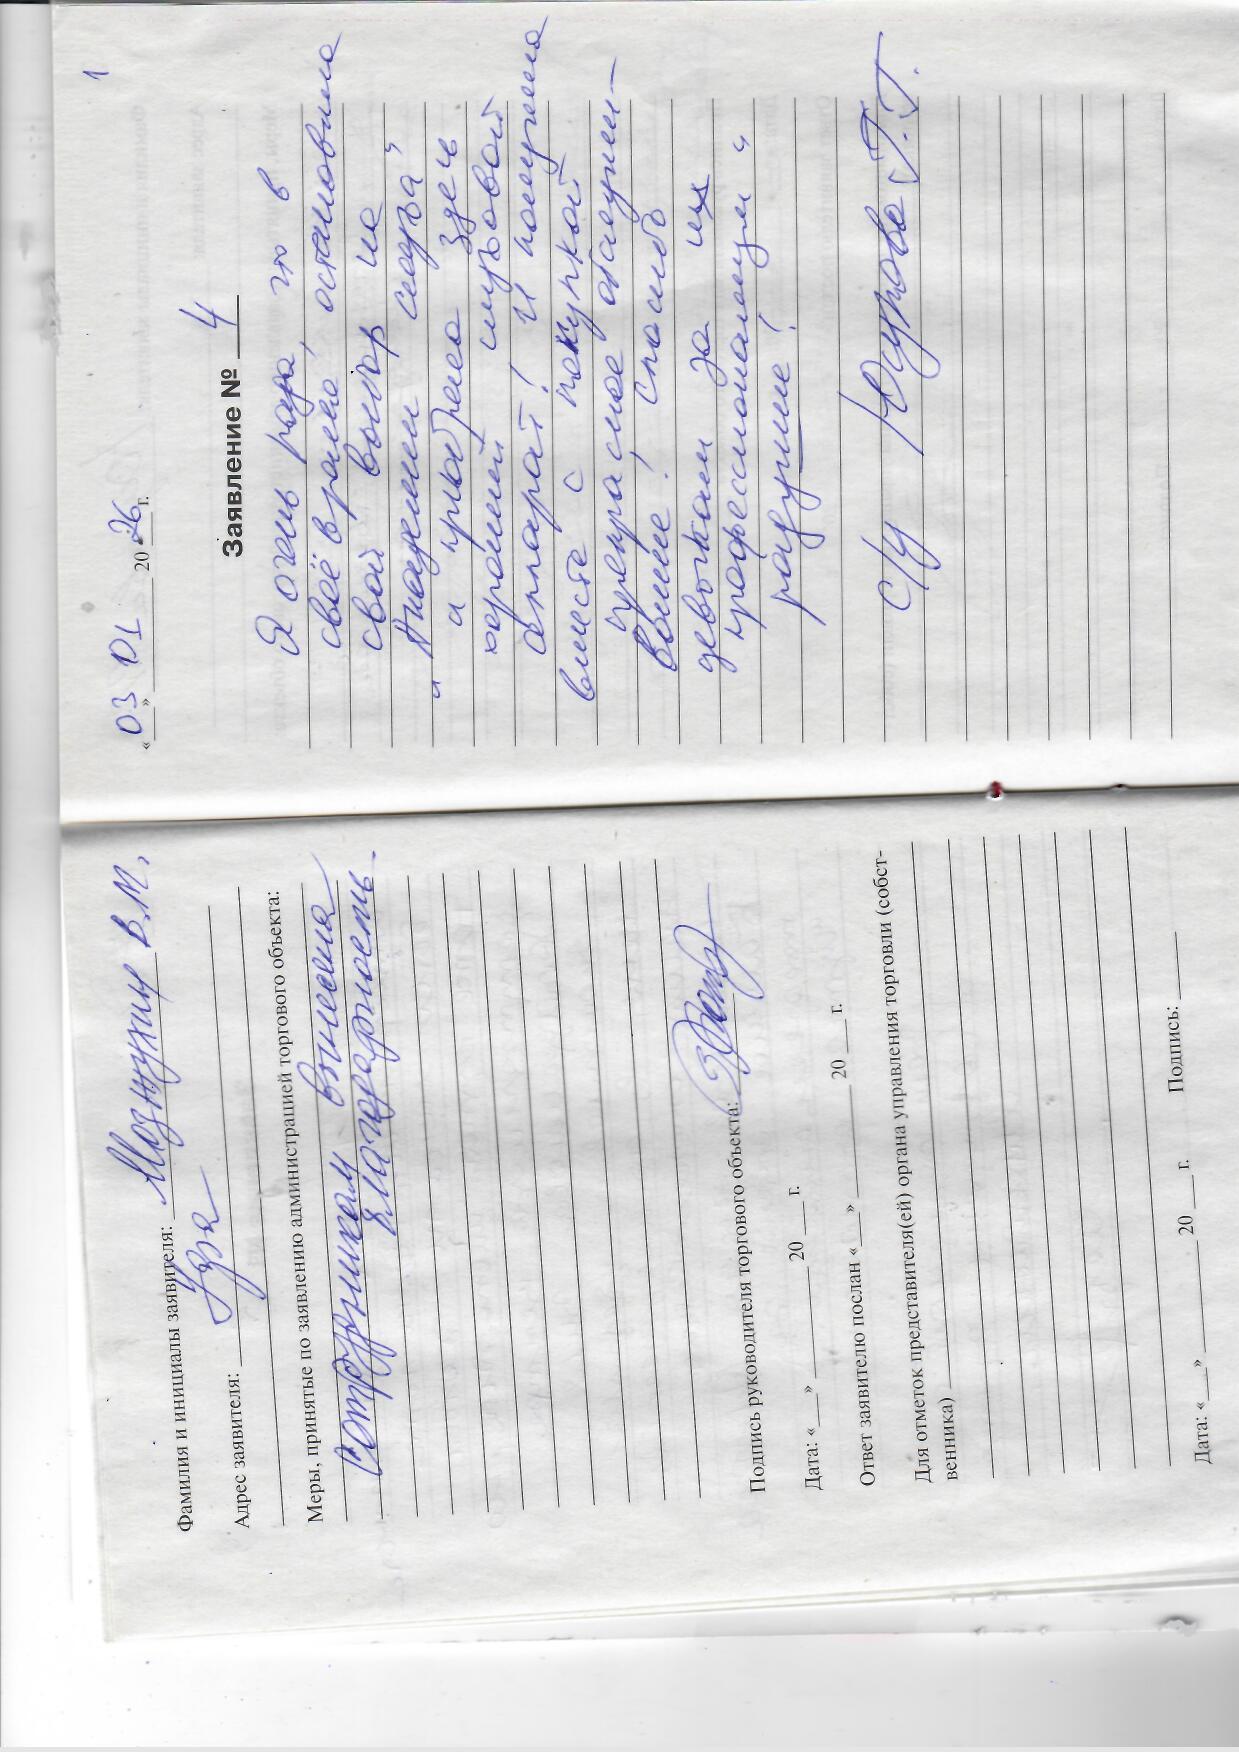 Фамилия и инициалы заявителя: Мозжухин В.М.
Уфа
Адрес заявителя:
Меры, принятые по заявлению администрацией торгового объекта:
Сотрудникам вынесена
благодарность.
Подпись руководителя торгового объекта:
Дата: «___» ___ 20 ___ г.
Ответ заявителю послан «___» ___ 20 ___ г.
Для отметок представителя(ей) органа управления торговли (собст-
венника)
Дата: «___» ___ 20 ___ г. Подпись: ___
1
«03» 01 2026 г.
Заявление № 4
Я очень рада, что в
своё время, остановила
свой выбор на
"Академии слуха"
и приобрела здесь
хороший слуховой
аппарат! И получила
вместе с покупкой
прекрасное обслужи-
вание! Спасибо
девочкам за их
профессионализм и
радушие!
с/у Юсупова Г.Г.